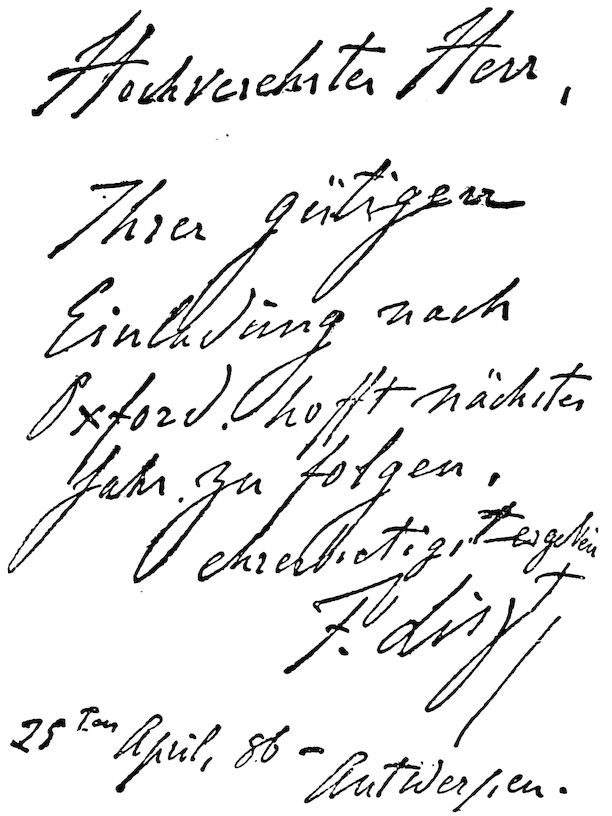 Hochverehrter Herr,
Ihrer gütigen
Einladung nach
Oxford. hofft nächstes
Jahr. zu folgen.
ehrerbietigst ergeben
F. Liszt
April, 86 – Antwerpen.